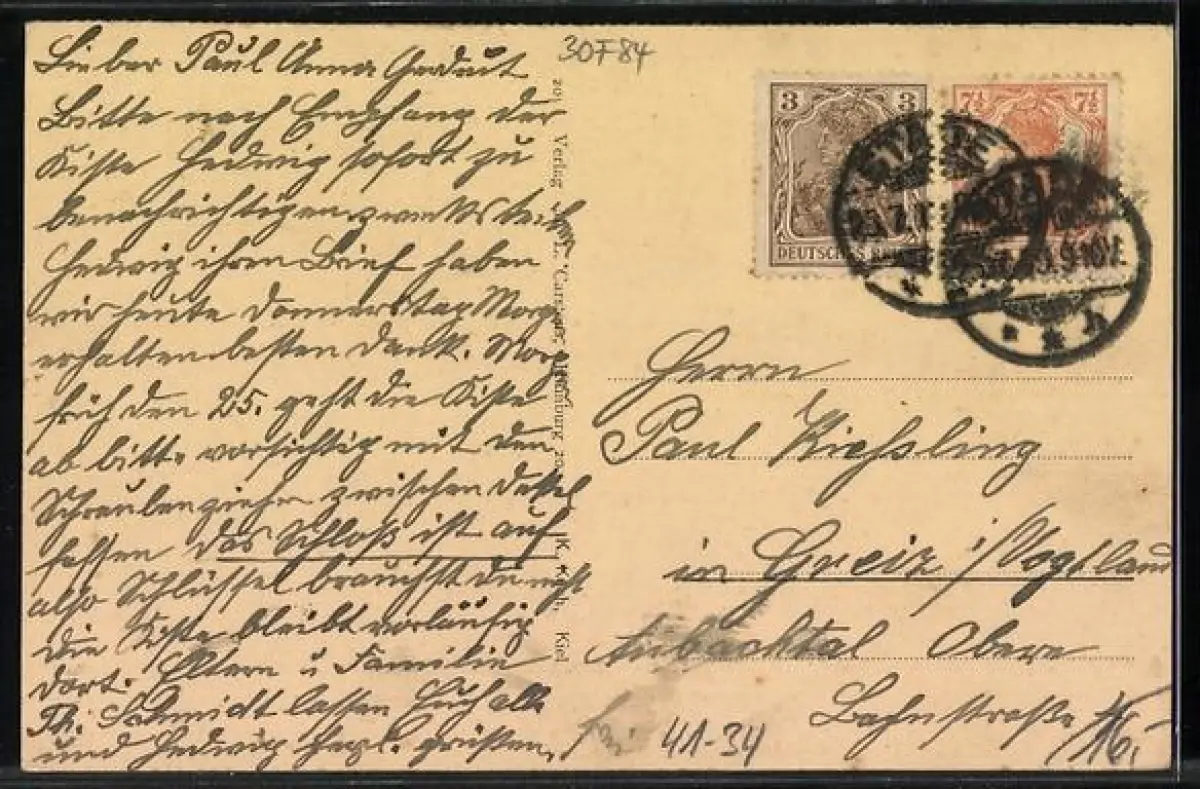 Lieber Paul Anna Gertrut
Bitte nach Empfang der
Kiste Hedwig sofort zu
benachrichtigen zwecks
Hedwig ihren Brief haben
wir heute Donnerstag Morg.
erhalten besten Dank. Morg.
früh den 25. geht die Kiste
ab bitte vorsichtig mit den
Schraubenzieher zwischen Deckel
fassen das Schloß ist auf
also Schlüssel brauchst Du nicht
die Kiste bleibt vorläufig
dort. Eltern u Familie
Th. Schmidt lassen Euch alle
und Hedwig herzl. grüßen
Verlag
Hamburg
Kiel
30F84
3 3
DEUTSCHES REICH
7½ 7½
STADE
9-10V.
* * h
Herrn
Paul Kießling
in Greiz i/Vogtland
Aubachtal Obere
Bahnstraße 16.
41-34